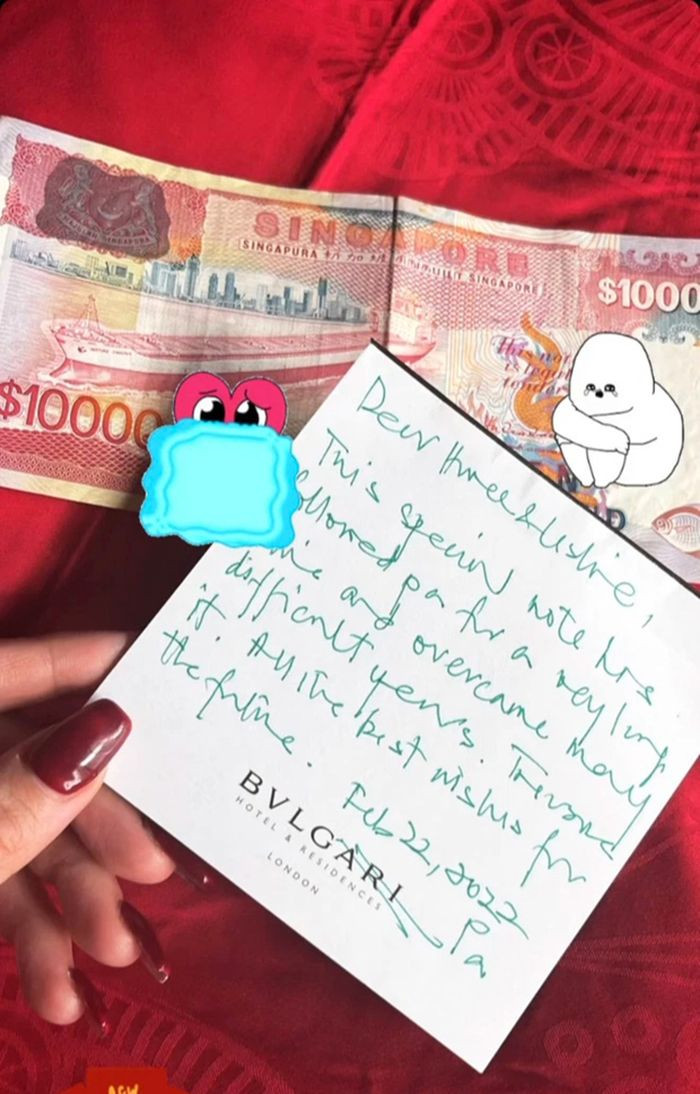 SINGAPORE
SINGAPURA SINGAPORE
$10000
$10000
Dear & Leslie,
This special note has
followed pa for a very long
time and overcame many
difficult years. Treasure
it. All the best wishes for
the future.
Feb 22, 2022
Pa
BVLGARI
HOTEL & RESIDENCES
LONDON